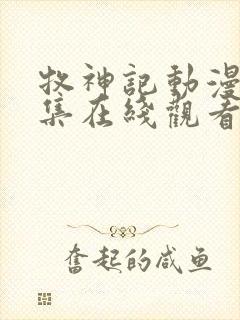 牧神記動漫
集在綫觀看
奮起的咸鱼